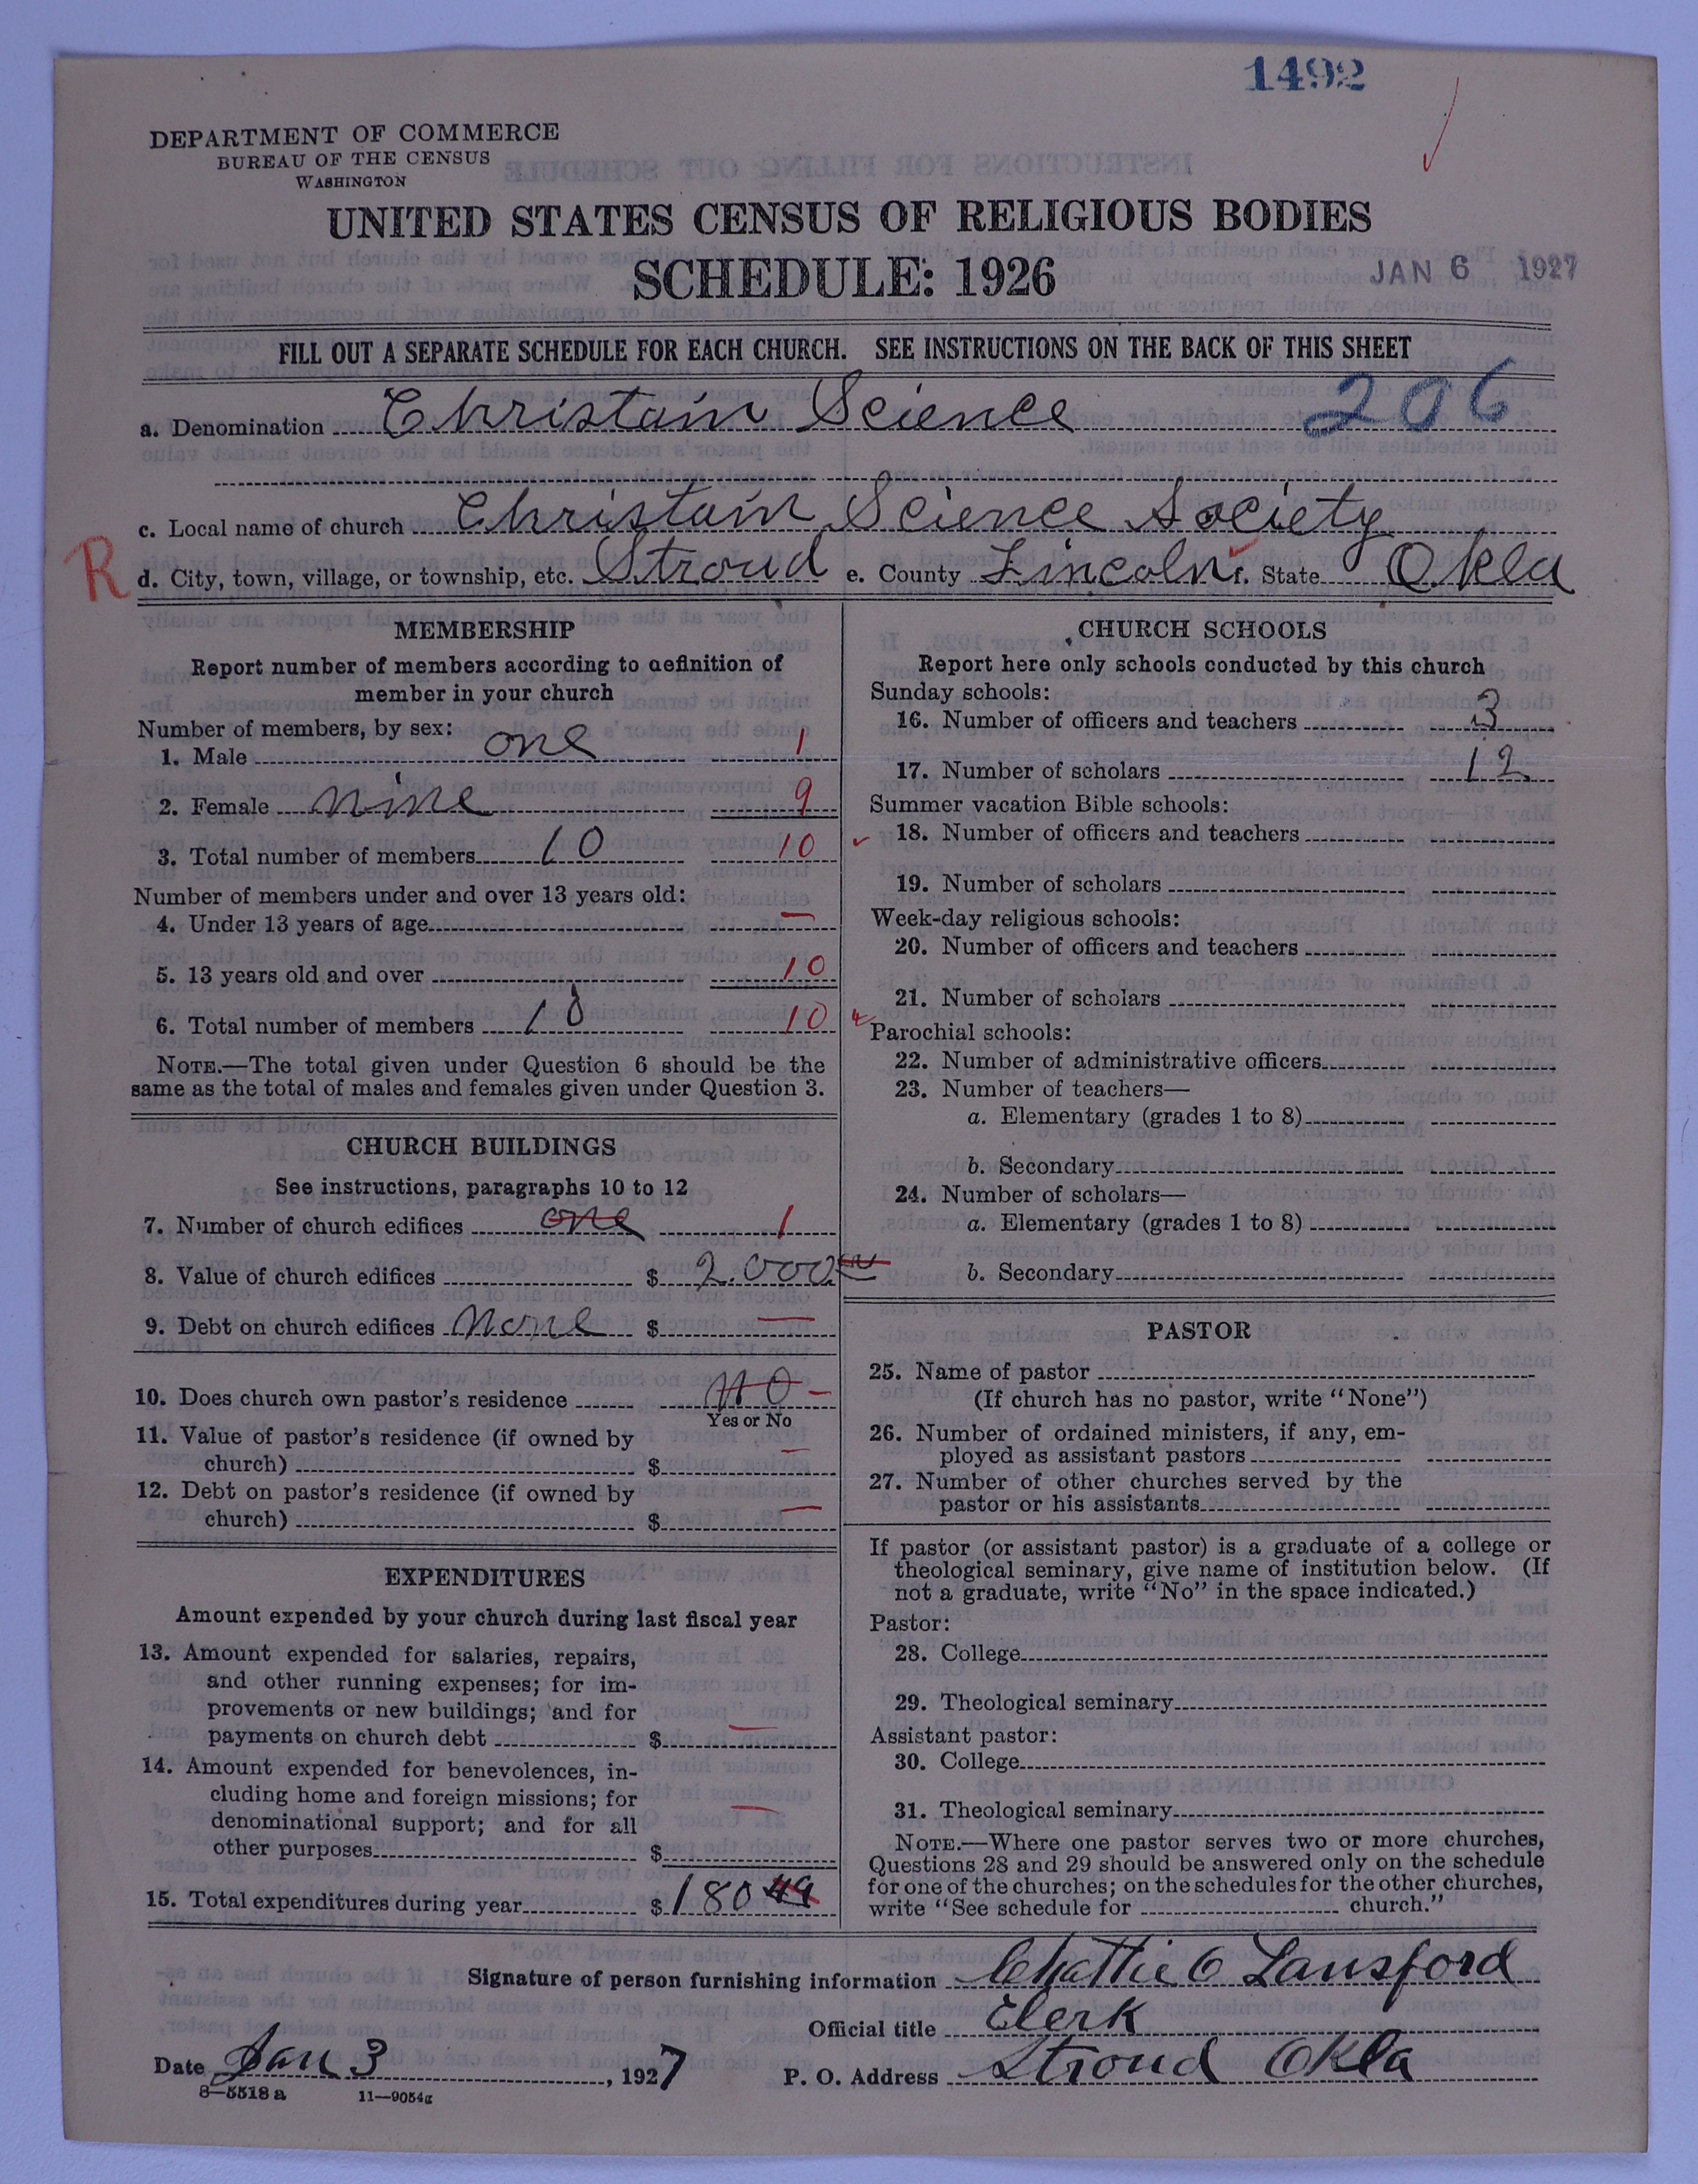 1492
DEPARTMENT OF COMMERCE
BUREAU OF THE CENSUS
WASHINGTON
UNITED STATES CENSUS OF RELIGIOUS BODIES
SCHEDULE: 1926
JAN 6 1927
FILL OUT A SEPARATE SCHEDULE FOR EACH CHURCH. SEE INSTRUCTIONS ON THE BACK OF THIS SHEET
a. Denomination Christain Science 206
c. Local name of church Christain Science Society
R d. City, town, village, or township, etc. Stroud e. County Lincoln f. State Okla
MEMBERSHIP
Report number of members according to definition of
member in your church
Number of members, by sex:
1. Male one 1
2. Female nine 9
3. Total number of members 10 10
Number of members under and over 13 years old:
4. Under 13 years of age —
5. 13 years old and over 10
6. Total number of members 10 10
NOTE.—The total given under Question 6 should be the
same as the total of males and females given under Question 3.
CHURCH BUILDINGS
See instructions, paragraphs 10 to 12
7. Number of church edifices one 1
8. Value of church edifices $ 2.000
9. Debt on church edifices None $ —
10. Does church own pastor's residence no —
Yes or No
11. Value of pastor's residence (if owned by
church) $ —
12. Debt on pastor's residence (if owned by
church) $ —
EXPENDITURES
Amount expended by your church during last fiscal year
13. Amount expended for salaries, repairs,
and other running expenses; for im-
provements or new buildings; and for
payments on church debt $ —
14. Amount expended for benevolences, in-
cluding home and foreign missions; for
denominational support; and for all
other purposes $ —
15. Total expenditures during year $ 180 49
CHURCH SCHOOLS
Report here only schools conducted by this church
Sunday schools:
16. Number of officers and teachers 3
17. Number of scholars 12
Summer vacation Bible schools:
18. Number of officers and teachers
19. Number of scholars
Week-day religious schools:
20. Number of officers and teachers
21. Number of scholars
Parochial schools:
22. Number of administrative officers
23. Number of teachers—
a. Elementary (grades 1 to 8)
b. Secondary
24. Number of scholars—
a. Elementary (grades 1 to 8)
b. Secondary
PASTOR
25. Name of pastor
(If church has no pastor, write "None")
26. Number of ordained ministers, if any, em-
ployed as assistant pastors
27. Number of other churches served by the
pastor or his assistants
If pastor (or assistant pastor) is a graduate of a college or
theological seminary, give name of institution below. (If
not a graduate, write "No" in the space indicated.)
Pastor:
28. College
29. Theological seminary
Assistant pastor:
30. College
31. Theological seminary
NOTE.—Where one pastor serves two or more churches,
Questions 28 and 29 should be answered only on the schedule
for one of the churches; on the schedules for the other churches,
write "See schedule for church."
Signature of person furnishing information Chattie O Lansford
Official title Clerk
Date Jan 3, 1927 P. O. Address Stroud Okla
8—5518 a 11—9054g